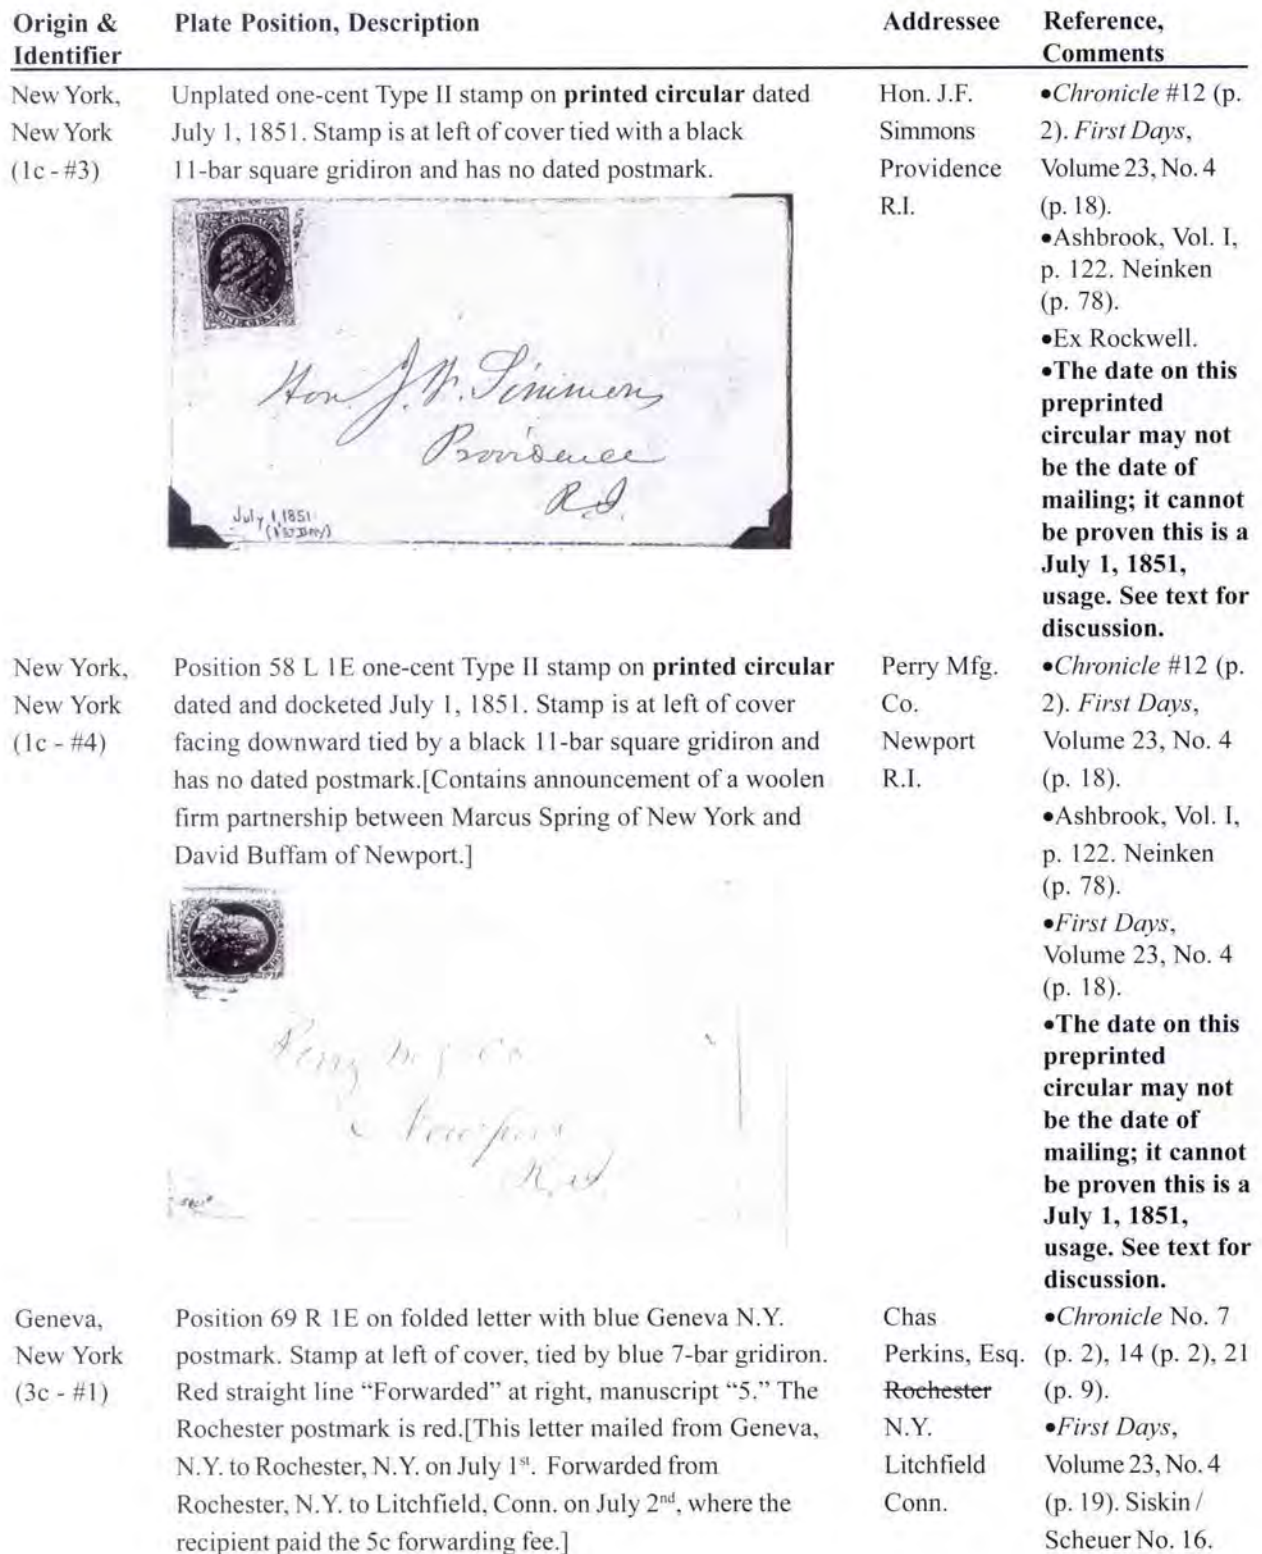 Origin & Identifier
Plate Position, Description
Addressee
Reference, Comments
New York,
New York
(1c - #3)
Unplated one-cent Type II stamp on printed circular dated
July 1, 1851. Stamp is at left of cover tied with a black
11-bar square gridiron and has no dated postmark.
POSTAGE
ONE CENT
Hon. J. F. Simmons
Providence
R.I.
July 1, 1851
(1st DAY)
Hon. J.F.
Simmons
Providence
R.I.
•Chronicle #12 (p.
2). First Days,
Volume 23, No. 4
(p. 18).
•Ashbrook, Vol. I,
p. 122. Neinken
(p. 78).
•Ex Rockwell.
•The date on this
preprinted
circular may not
be the date of
mailing; it cannot
be proven this is a
July 1, 1851,
usage. See text for
discussion.
New York,
New York
(1c - #4)
Position 58 L 1E one-cent Type II stamp on printed circular
dated and docketed July 1, 1851. Stamp is at left of cover
facing downward tied by a black 11-bar square gridiron and
has no dated postmark.[Contains announcement of a woolen
firm partnership between Marcus Spring of New York and
David Buffam of Newport.]
Perry M g Co
Newport
R.I.
Perry Mfg.
Co.
Newport
R.I.
•Chronicle #12 (p.
2). First Days,
Volume 23, No. 4
(p. 18).
•Ashbrook, Vol. I,
p. 122. Neinken
(p. 78).
•First Days,
Volume 23, No. 4
(p. 18).
•The date on this
preprinted
circular may not
be the date of
mailing; it cannot
be proven this is a
July 1, 1851,
usage. See text for
discussion.
Geneva,
New York
(3c - #1)
Position 69 R 1E on folded letter with blue Geneva N.Y.
postmark. Stamp at left of cover, tied by blue 7-bar gridiron.
Red straight line “Forwarded” at right, manuscript “5.” The
Rochester postmark is red.[This letter mailed from Geneva,
N.Y. to Rochester, N.Y. on July 1st. Forwarded from
Rochester, N.Y. to Litchfield, Conn. on July 2nd, where the
recipient paid the 5c forwarding fee.]
Chas
Perkins, Esq.
Rochester
N.Y.
Litchfield
Conn.
•Chronicle No. 7
(p. 2), 14 (p. 2), 21
(p. 9).
•First Days,
Volume 23, No. 4
(p. 19). Siskin /
Scheuer No. 16.